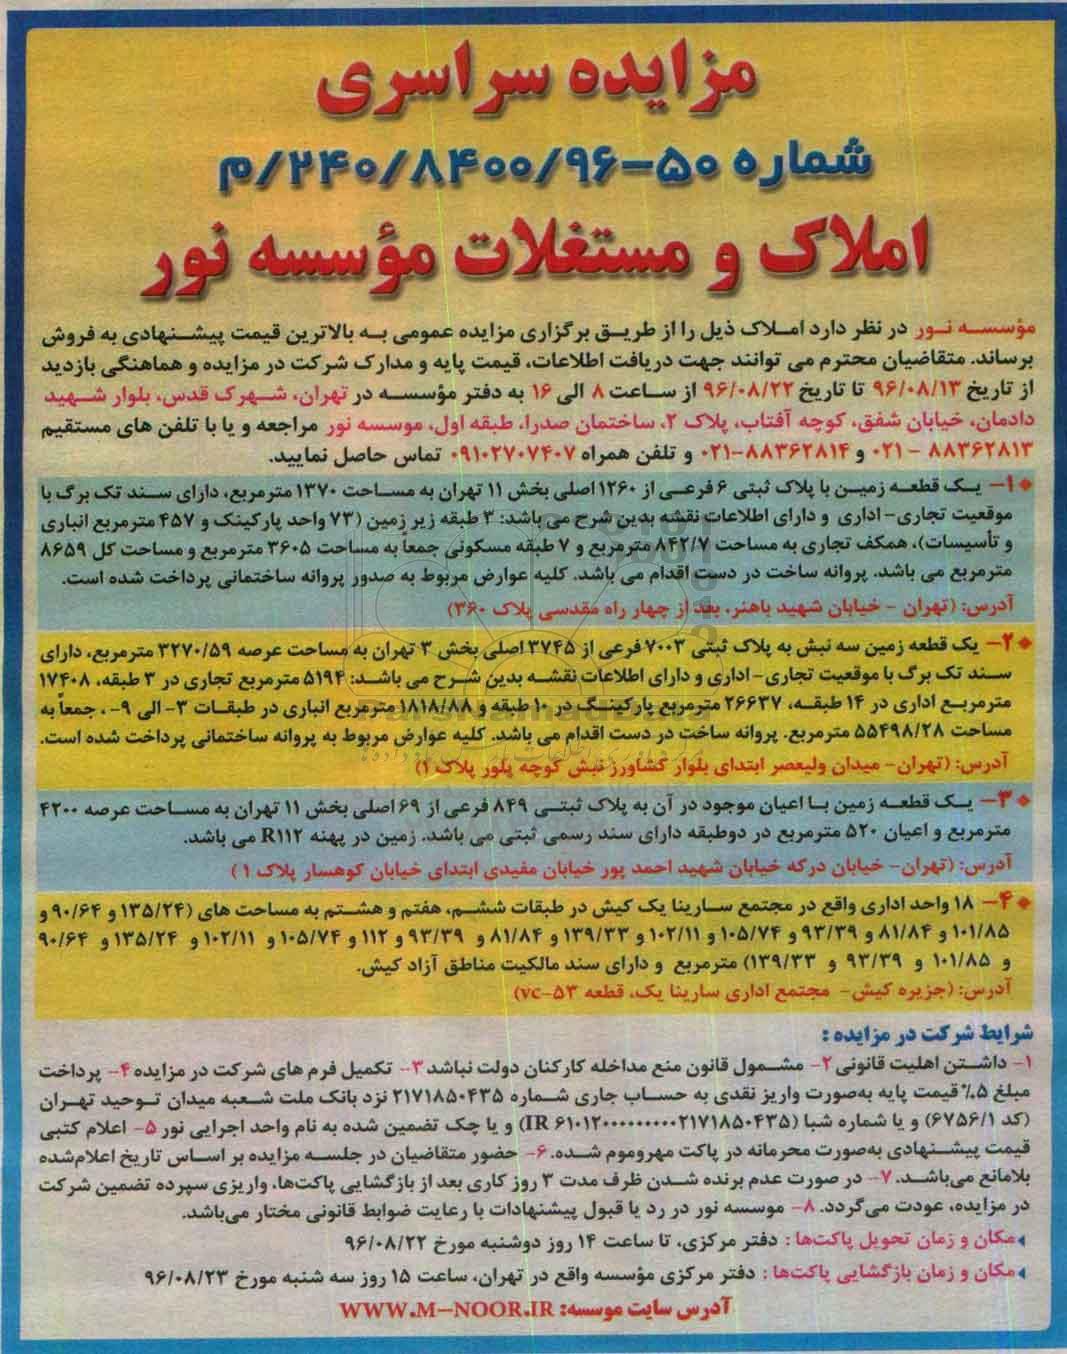 مزایده سراسری
شماره ۵۰-۲۴۰/۸۴۰۰/۹۶/م
املاک و مستغلات مؤسسه نور
مؤسسه نور در نظر دارد املاک ذیل را از طریق برگزاری مزایده عمومی به بالاترین قیمت پیشنهادی به فروش
برساند. متقاضیان محترم می توانند جهت دریافت اطلاعات، قیمت پایه و مدارک شرکت در مزایده و هماهنگی بازدید
از تاریخ ۹۶/۰۸/۱۳ تا تاریخ ۹۶/۰۸/۲۲ از ساعت ۸ الی ۱۶ به دفتر مؤسسه در تهران، شهرک قدس، بلوار شهید
دادمان، خیابان شفق، کوچه آفتاب، پلاک ۲، ساختمان صدرا، طبقه اول، موسسه نور مراجعه و یا با تلفن های مستقیم
۸۸۳۶۲۸۱۳ - ۰۲۱ و ۸۸۳۶۲۸۱۴-۰۲۱ و تلفن همراه ۰۹۱۰۲۷۰۷۴۰۷ تماس حاصل نمایید.
۱- یک قطعه زمین با پلاک ثبتی ۶ فرعی از ۱۲۶۰ اصلی بخش ۱۱ تهران به مساحت ۱۳۷۰ مترمربع، دارای سند تک برگ با
موقعیت تجاری- اداری و دارای اطلاعات نقشه بدین شرح می باشد: ۳ طبقه زیر زمین (۷۳ واحد پارکینک و ۴۵۷ مترمربع انباری
و تأسیسات)، همکف تجاری به مساحت ۸۴۲/۷ مترمربع و ۷ طبقه مسکونی جمعاً به مساحت ۳۶۰۵ مترمربع و مساحت کل ۸۶۵۹
مترمربع می باشد. پروانه ساخت در دست اقدام می باشد. کلیه عوارض مربوط به صدور پروانه ساختمانی پرداخت شده است.
آدرس: (تهران - خیابان شهید باهنر، بعد از چهار راه مقدسی پلاک ۳۶۰)
۲- یک قطعه زمین سه نبش به پلاک ثبتی ۷۰۰۳ فرعی از ۳۷۴۵ اصلی بخش ۳ تهران به مساحت عرصه ۳۲۷۰/۵۹ مترمربع، دارای
سند تک برگ با موقعیت تجاری- اداری و دارای اطلاعات نقشه بدین شرح می باشد: ۵۱۹۴ مترمربع تجاری در ۳ طبقه، ۱۷۴۰۸
مترمربع اداری در ۱۴ طبقه، ۲۶۶۳۷ مترمربع پارکینگ در ۱۰ طبقه و ۱۸۱۸/۸۸ مترمربع انباری در طبقات ۳- الی ۹- ، جمعاً به
مساحت ۵۵۴۹۸/۲۸ مترمربع. پروانه ساخت در دست اقدام می باشد. کلیه عوارض مربوط به پروانه ساختمانی پرداخت شده است.
آدرس: (تهران- میدان ولیعصر ابتدای بلوار کشاورز نبش کوچه پلور پلاک ۱)
۳- یک قطعه زمین با اعیان موجود در آن به پلاک ثبتی ۸۴۹ فرعی از ۶۹ اصلی بخش ۱۱ تهران به مساحت عرصه ۴۲۰۰
مترمربع و اعیان ۵۲۰ مترمربع در دوطبقه دارای سند رسمی ثبتی می باشد. زمین در پهنه R۱۱۲ می باشد.
آدرس: (تهران- خیابان درکه خیابان شهید احمد پور خیابان مفیدی ابتدای خیابان کوهسار پلاک ۱ )
۴- ۱۸ واحد اداری واقع در مجتمع سارینا یک کیش در طبقات ششم، هفتم و هشتم به مساحت های (۱۳۵/۲۴ و ۹۰/۶۴ و
۱۰۱/۸۵ و ۸۱/۸۴ و ۹۳/۳۹ و ۱۰۵/۷۴ و ۱۰۲/۱۱ و ۱۳۹/۳۳ و ۸۱/۸۴ و ۹۳/۳۹ و ۱۱۲ و ۱۰۵/۷۴ و ۱۰۲/۱۱ و ۱۳۵/۲۴ و ۹۰/۶۴
و ۱۰۱/۸۵ و ۹۳/۳۹ و ۱۳۹/۳۳) مترمربع و دارای سند مالکیت مناطق آزاد کیش.
آدرس: (جزیره کیش- مجتمع اداری سارینا یک، قطعه vc-۵۳)
شرایط شرکت در مزایده :
۱- داشتن اهلیت قانونی ۲- مشمول قانون منع مداخله کارکنان دولت نباشد ۳- تکمیل فرم های شرکت در مزایده ۴- پرداخت
مبلغ ۵٪ قیمت پایه به‌صورت واریز نقدی به حساب جاری شماره ۲۱۷۱۸۵۰۴۳۵ نزد بانک ملت شعبه میدان توحید تهران
(کد ۶۷۵۶/۱) و یا شماره شبا (IR ۶۱۰۱۲۰۰۰۰۰۰۰۰۰۰۲۱۷۱۸۵۰۴۳۵) و یا چک تضمین شده به نام واحد اجرایی نور ۵- اعلام کتبی
قیمت پیشنهادی به‌صورت محرمانه در پاکت مهروموم شده. ۶- حضور متقاضیان در جلسه مزایده بر اساس تاریخ اعلام‌شده
بلامانع می‌باشد. ۷- در صورت عدم برنده شدن ظرف مدت ۳ روز کاری بعد از بازگشایی پاکت‌ها، واریزی سپرده تضمین شرکت
در مزایده، عودت می‌گردد. ۸- موسسه نور در رد یا قبول پیشنهادات با رعایت ضوابط قانونی مختار می‌باشد.
مکان و زمان تحویل پاکت‌ها : دفتر مرکزی، تا ساعت ۱۴ روز دوشنبه مورخ ۹۶/۰۸/۲۲
مکان و زمان بازگشایی پاکت‌ها : دفتر مرکزی مؤسسه واقع در تهران، ساعت ۱۵ روز سه شنبه مورخ ۹۶/۰۸/۲۳
آدرس سایت موسسه: WWW.M-NOOR.IR